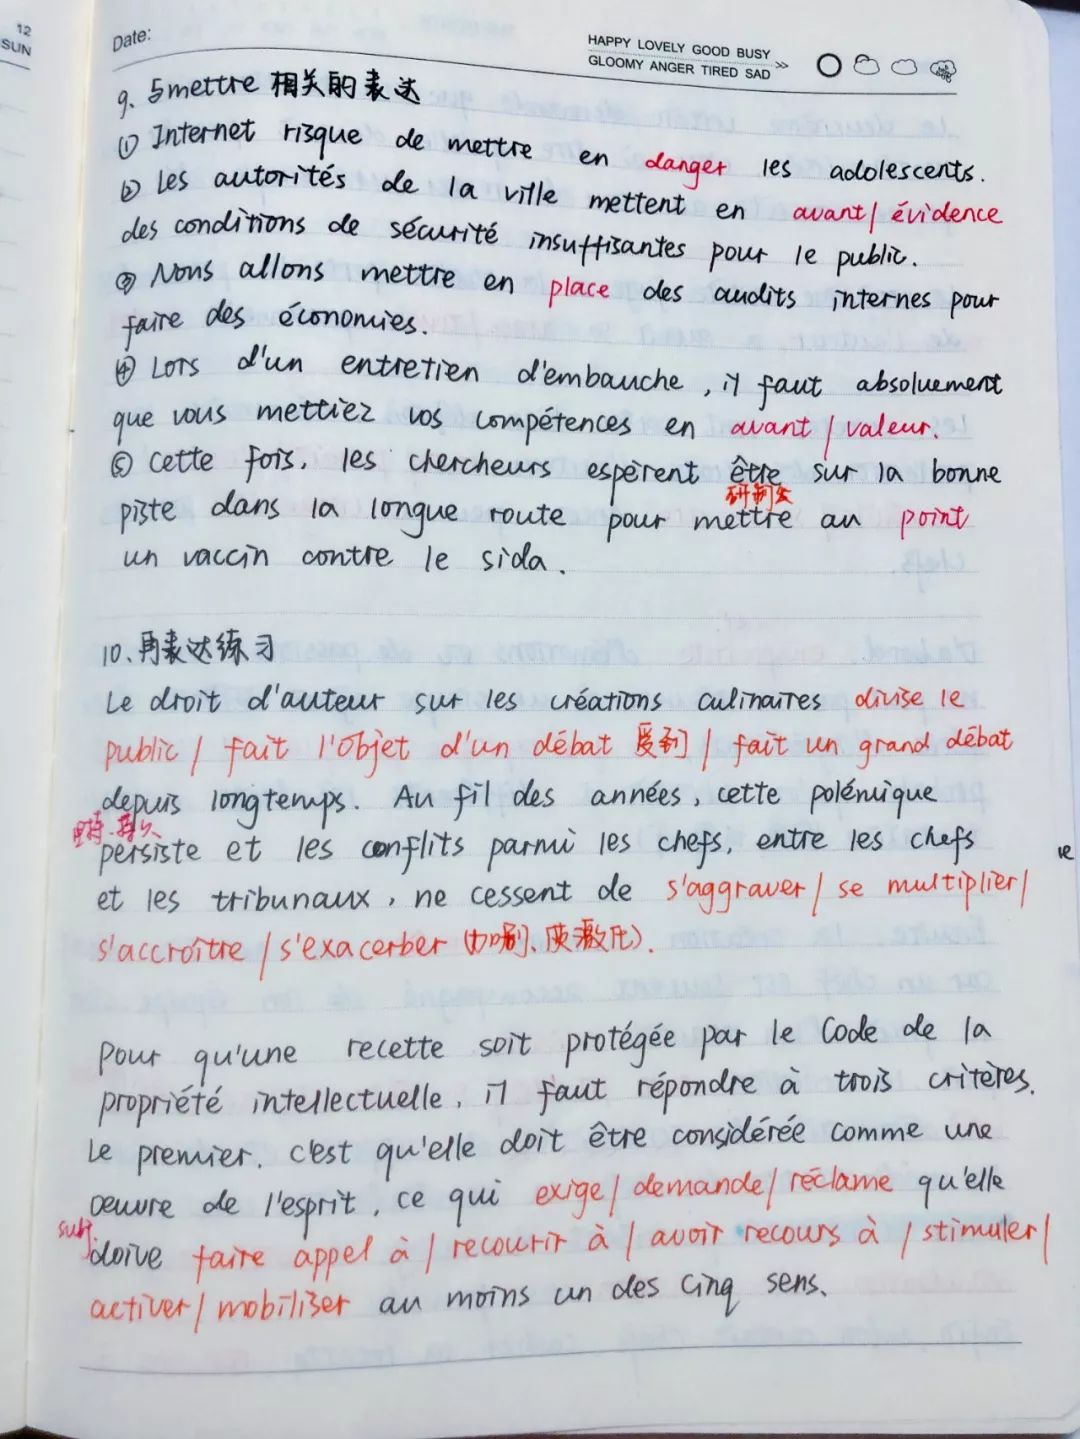 12
SUN
Date:
HAPPY LOVELY GOOD BUSY
GLOOMY ANGER TIRED SAD >>
9. 与mettre 相关的表达
① Internet risque de mettre en danger les adolescents.
② Les autorités de la ville mettent en avant/ évidence
des conditions de sécurité insuffisantes pour le public.
③ Nous allons mettre en place des audits internes pour
faire des économies.
④ Lors d'un entretien d'embauche, il faut absoluement
que vous mettiez vos compétences en avant / valeur.
⑤ Cette fois, les chercheurs espèrent être sur la bonne
研制出
piste dans la longue route pour mettre au point
un vaccin contre le sida.
10、再表达练习
Le droit d'auteur sur les créations culinaires divise le
public / fait l'objet d'un débat 受到 / fait un grand débat
depuis longtemps. Au fil des années, cette polémique
坚持、持久
persiste et les conflits parmi les chefs, entre les chefs
et les tribunaux, ne cessent de s'aggraver/ se multiplier/
s'accroître / s'exacerber (加剧、使激化).
Pour qu'une recette soit protégée par le Code de la
propriété intellectuelle, il faut répondre à trois critères.
Le premier, c'est qu'elle doit être considérée comme une
œuvre de l'esprit, ce qui exige/ demande/ réclame qu'elle
subj
doive faire appel à / recourir à / avoir recours à / stimuler/
activer/ mobiliser au moins un des cinq sens.
le